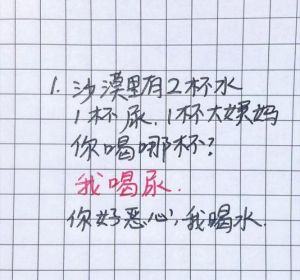 1. 沙漠里有2杯水
1杯尿.1杯大姨妈
你喝哪杯?
我喝尿.
你好恶心,我喝水.